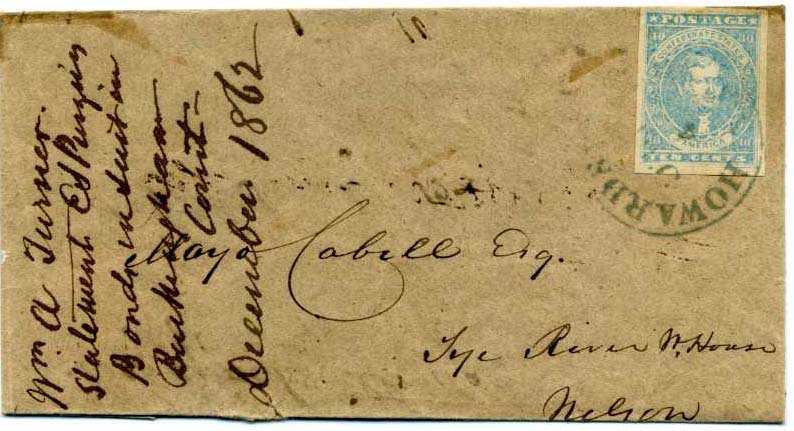 Wm. A Turner.
Statement Ed
Bonds in suit in
Buckingham
Court
December 1862
POSTAGE
10 10
CONFEDERATE STATES
AMERICA
10 10
TEN CENTS
HOWARDS
Mayo Cabell Esq.
Tye River W. House
Nelson